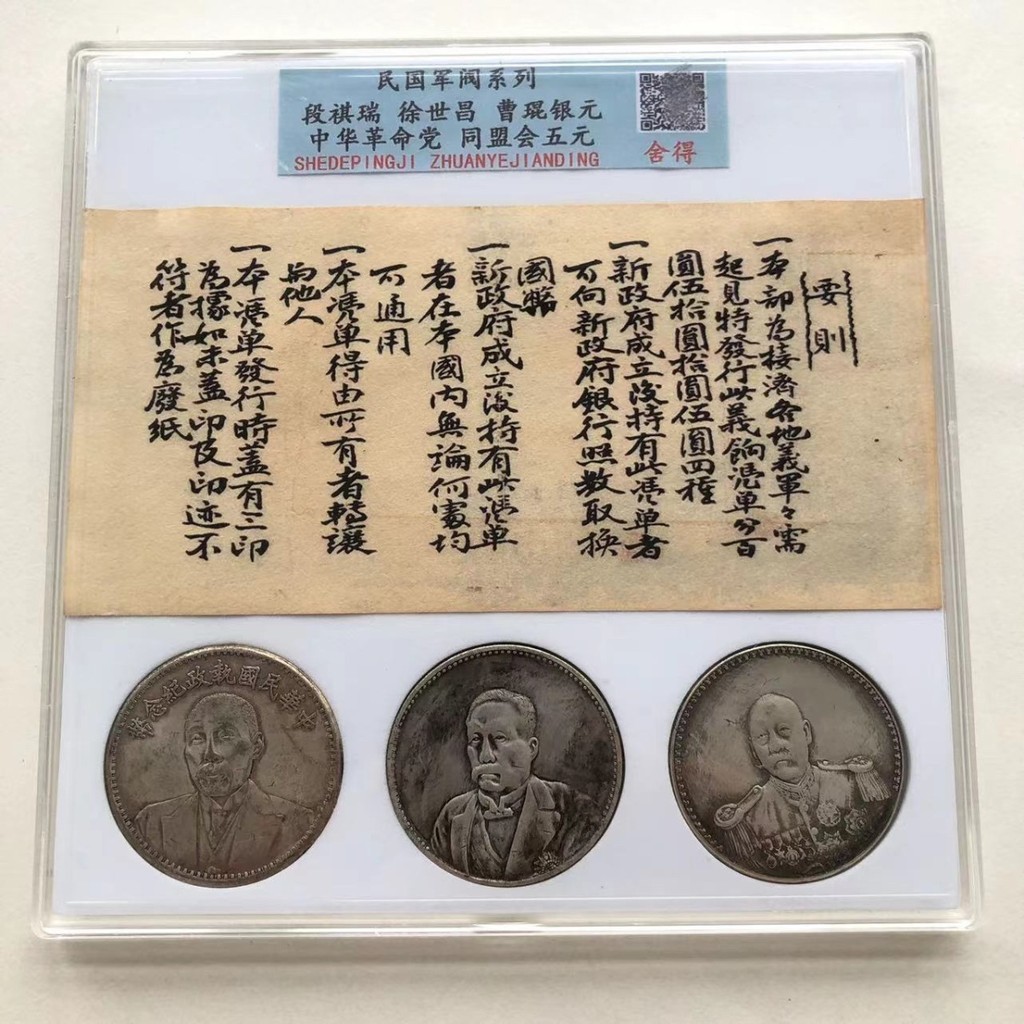 民国军阀系列
段祺瑞 徐世昌 曹琨银元
中华革命党 同盟会五元
SHEDEPINGJI ZHUANYEJIANDING
舍得
要則
一本部為接濟各地義軍々需
起見特發行此義餉憑単分百
圓伍拾圓拾圓伍圓四種
一新政府成立後持有此憑単者
可向新政府銀行照数取換
國幣
一新政府成立後持有此憑単
者在本國内無論何處均
可通用
一本憑単得由所有者轉讓
他人
一本憑単發行時蓋有二印
為據如未蓋印及印迹不
符者作為廢紙
中華民國執政紀念幣